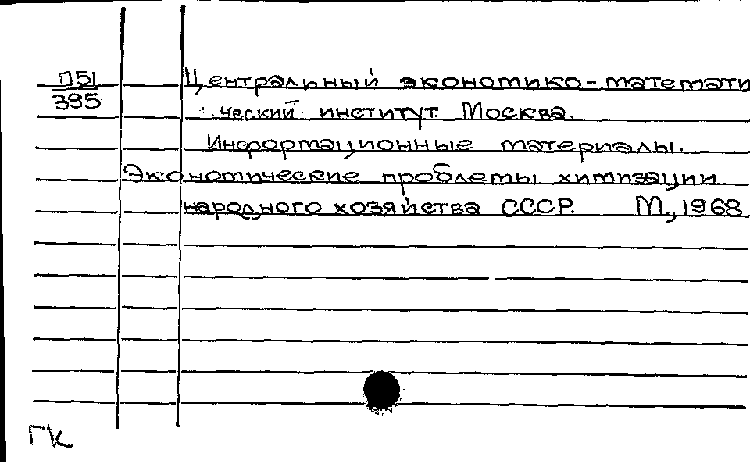 П51
395
Центральный экономико-математи
ческий институт Москва.
Информационные материалы.
Экономические проблемы химизации
народного хозяйства СССР. М., 1968
ГК